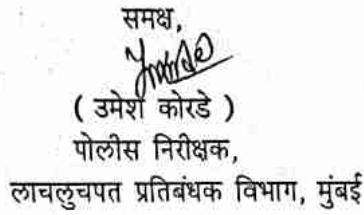 समक्ष,
( उमेश कोरडे )
पोलीस निरीक्षक,
लाचलुचपत प्रतिबंधक विभाग, मुंबई